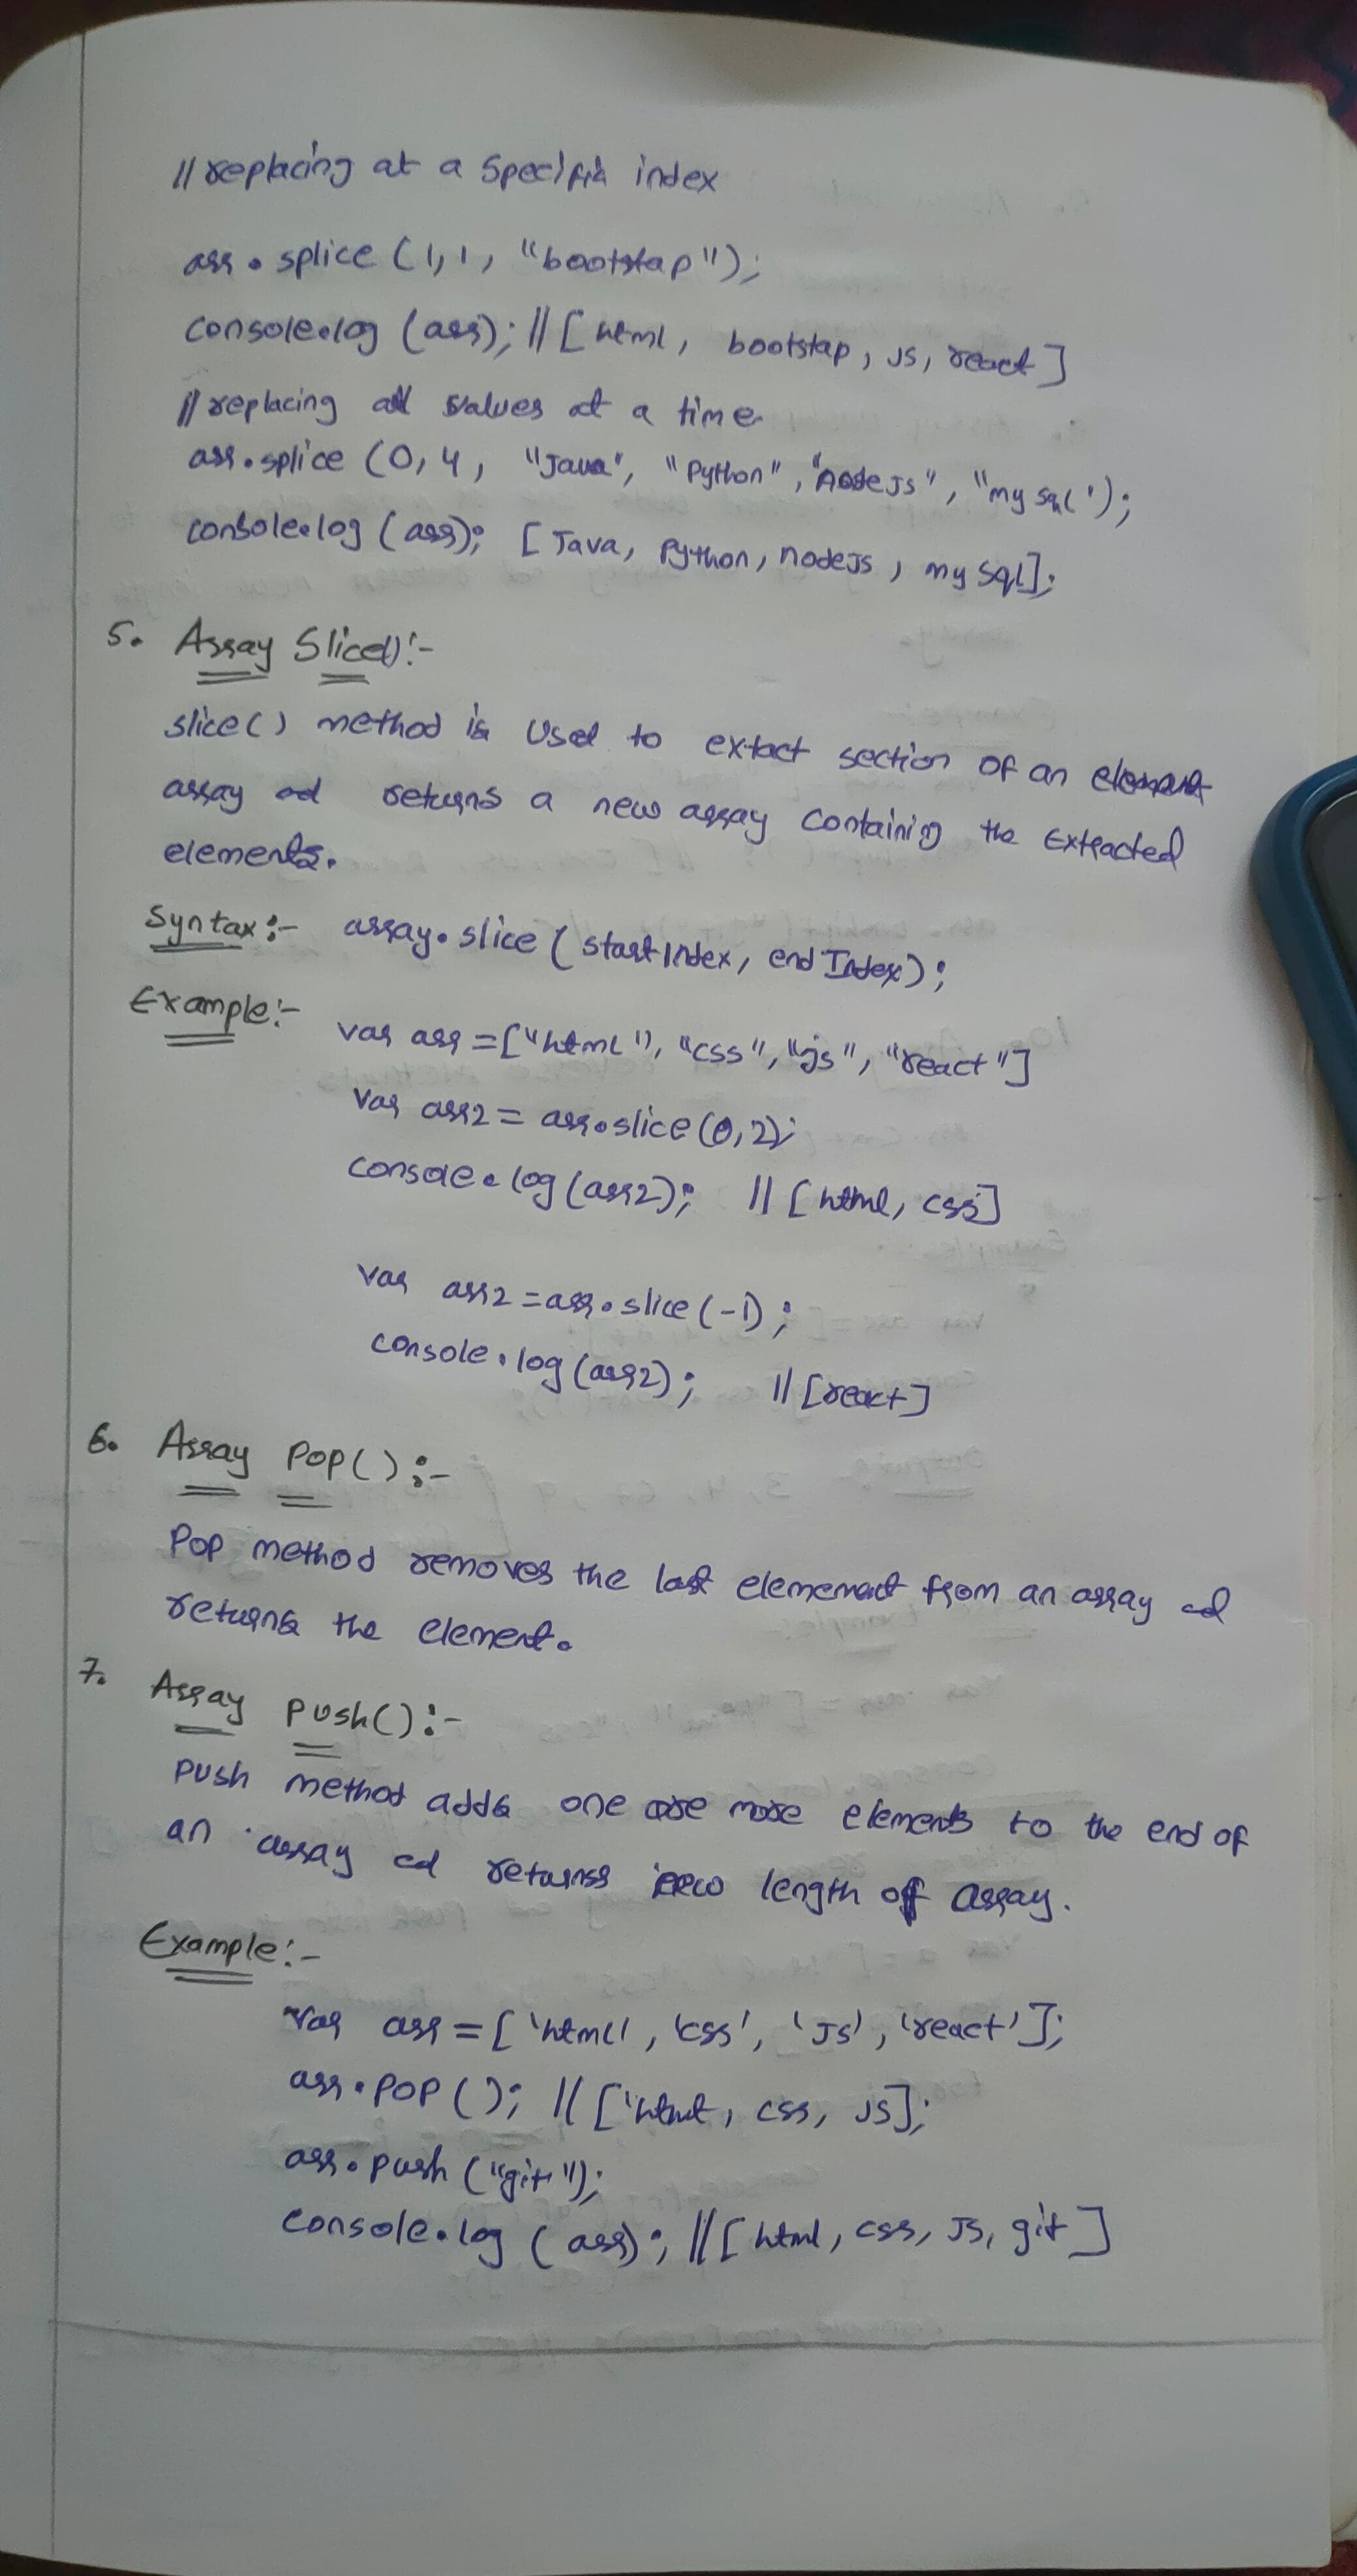 // replacing at a specific index
arr.splice (1,1, "bootstap");
console.log (arr); // [html, bootstap, JS, react]
// replacing all values at a time
arr.splice (0,4, "Java", "Python", "Node JS", "my sql');
console.log (arr); [Java, Python, nodeJS, my sql];
5. Array Slice():-
slice() method is used to extact section of an element
array ad returns a new array containing the Extracted
elements.
Syntax:- array.slice (startIndex, end Index);
Example:-
var arr =["html"), "css", "js", "react"]
var arr2 = arr.slice (0,2);
console.log (arr2); // [html, css]
var arr2 = arr.slice (-1);
console.log (arr2); // [react]
6. Array Pop():-
Pop method removes the last elememant from an array ad
returns the element.
7. Array push():-
push method adds one ore more elements to the end of
an array ad returnss new length of array.
Example:-
var arr = ['html', 'css', 'JS', 'react'];
arr.POP (); // ['html, css, JS];
arr.push ("git");
console.log (arr); // [html, css, JS, git]